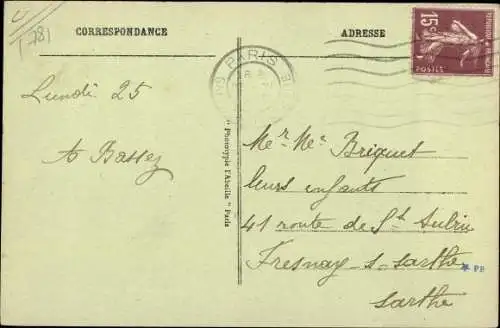 (78)
CORRESPONDANCE
ADRESSE
15c
POSTES
PARIS
Lundi 25
A Bassez
Mr Me Briquet
leurs enfants
41 route de St Aubin
Fresnay-s-sarthe
sarthe
" Phototypie l'Abeille " Paris
PB